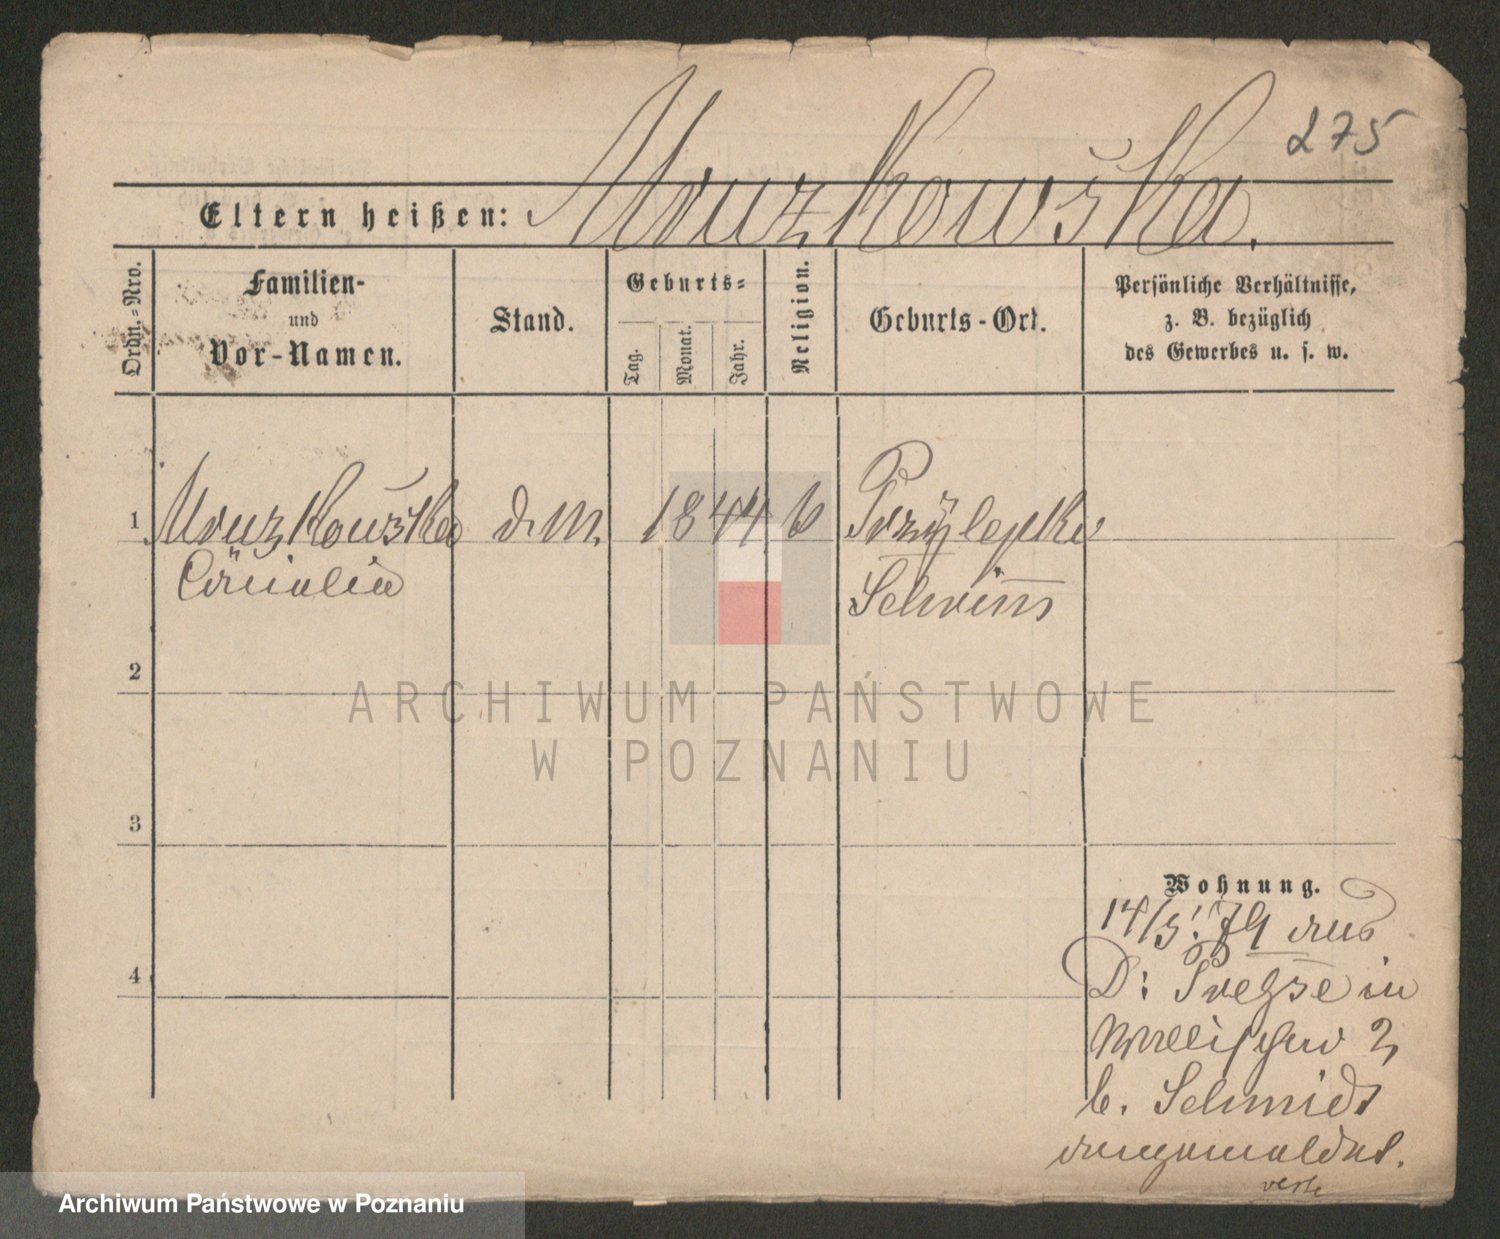 275
Eltern heißen: Mruzkowska.
Ordn.-Nro.
Familien-
und
Vor-Namen.
Stand.
Geburts-
Tag.
Monat.
Jahr.
Religion.
Geburts-Ort.
Persönliche Verhältnisse,
z. B. bezüglich
des Gewerbes u. s. w.
1 Mruzkowska d. M. 1844 k Przylepki
Schrimm
2
3
4
Wohnung.
14/5. 79 aus
D: Pretzse in
Wallischei 2
b. Schmidt
angemeldet.
ARCHIWUM PAŃSTWOWE
W POZNANIU
Archiwum Państwowe w Poznaniu